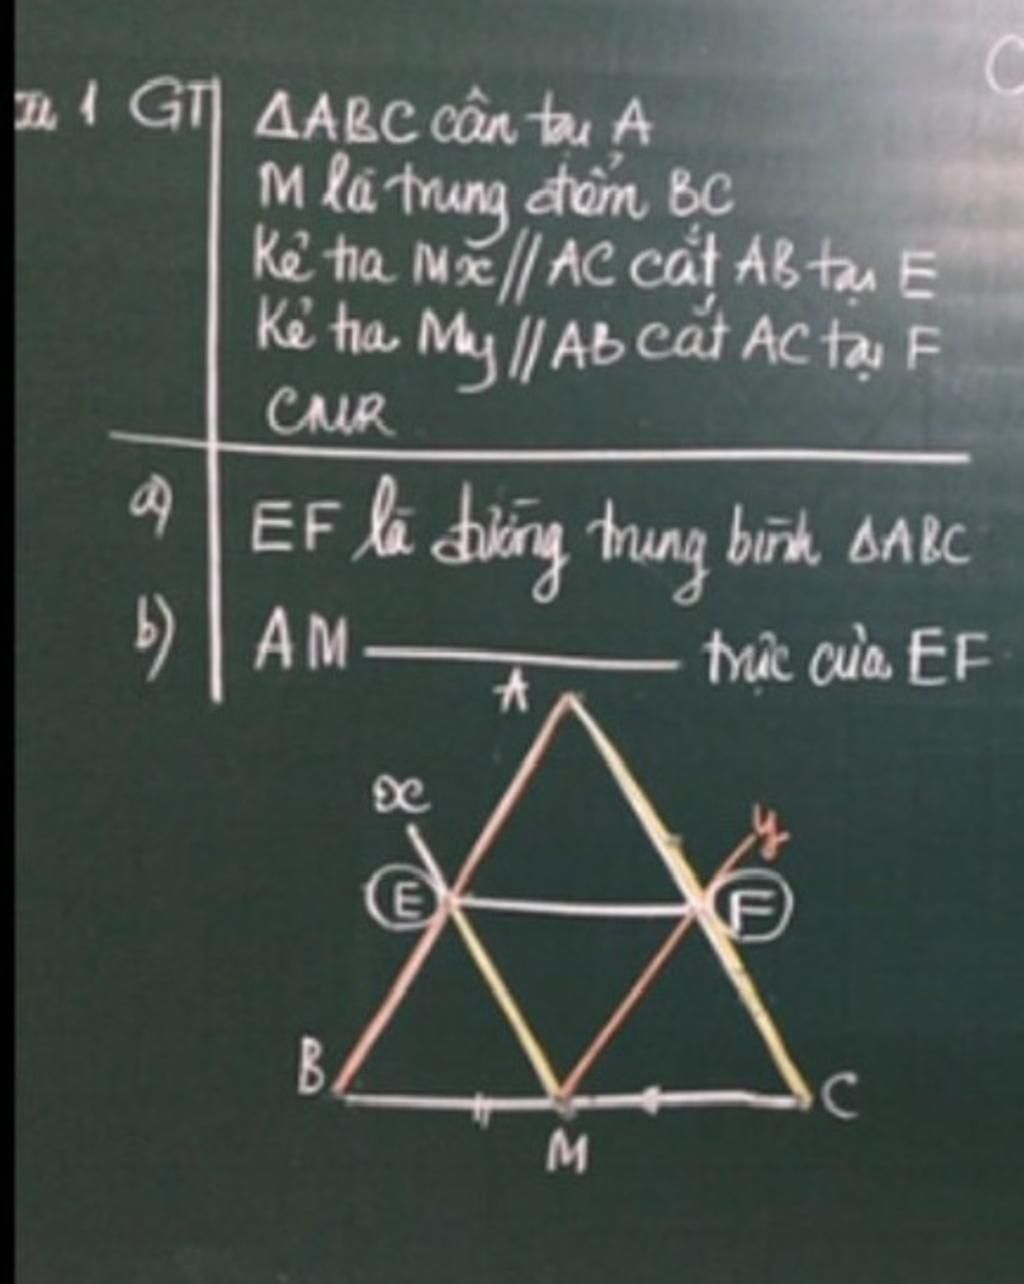 1 GT ΔABC cân tại A
M là trung điểm BC
Kẻ tia Mx // AC cắt AB tại E
Kẻ tia My // AB cắt AC tại F
CMR
a) EF là đường trung bình ΔABC
b) AM ――― trực của EF
A
x
y
E
F
B
C
M